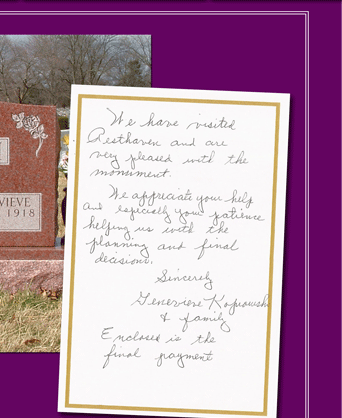 VIEVE
1918
We have visited
Resthaven and are
very pleased with the
monument.
We appreciate your help
and especially your patience
helping us with the
planning and final
decisions.
Sincerely
Genevieve
& family
Enclosed is the
final payment